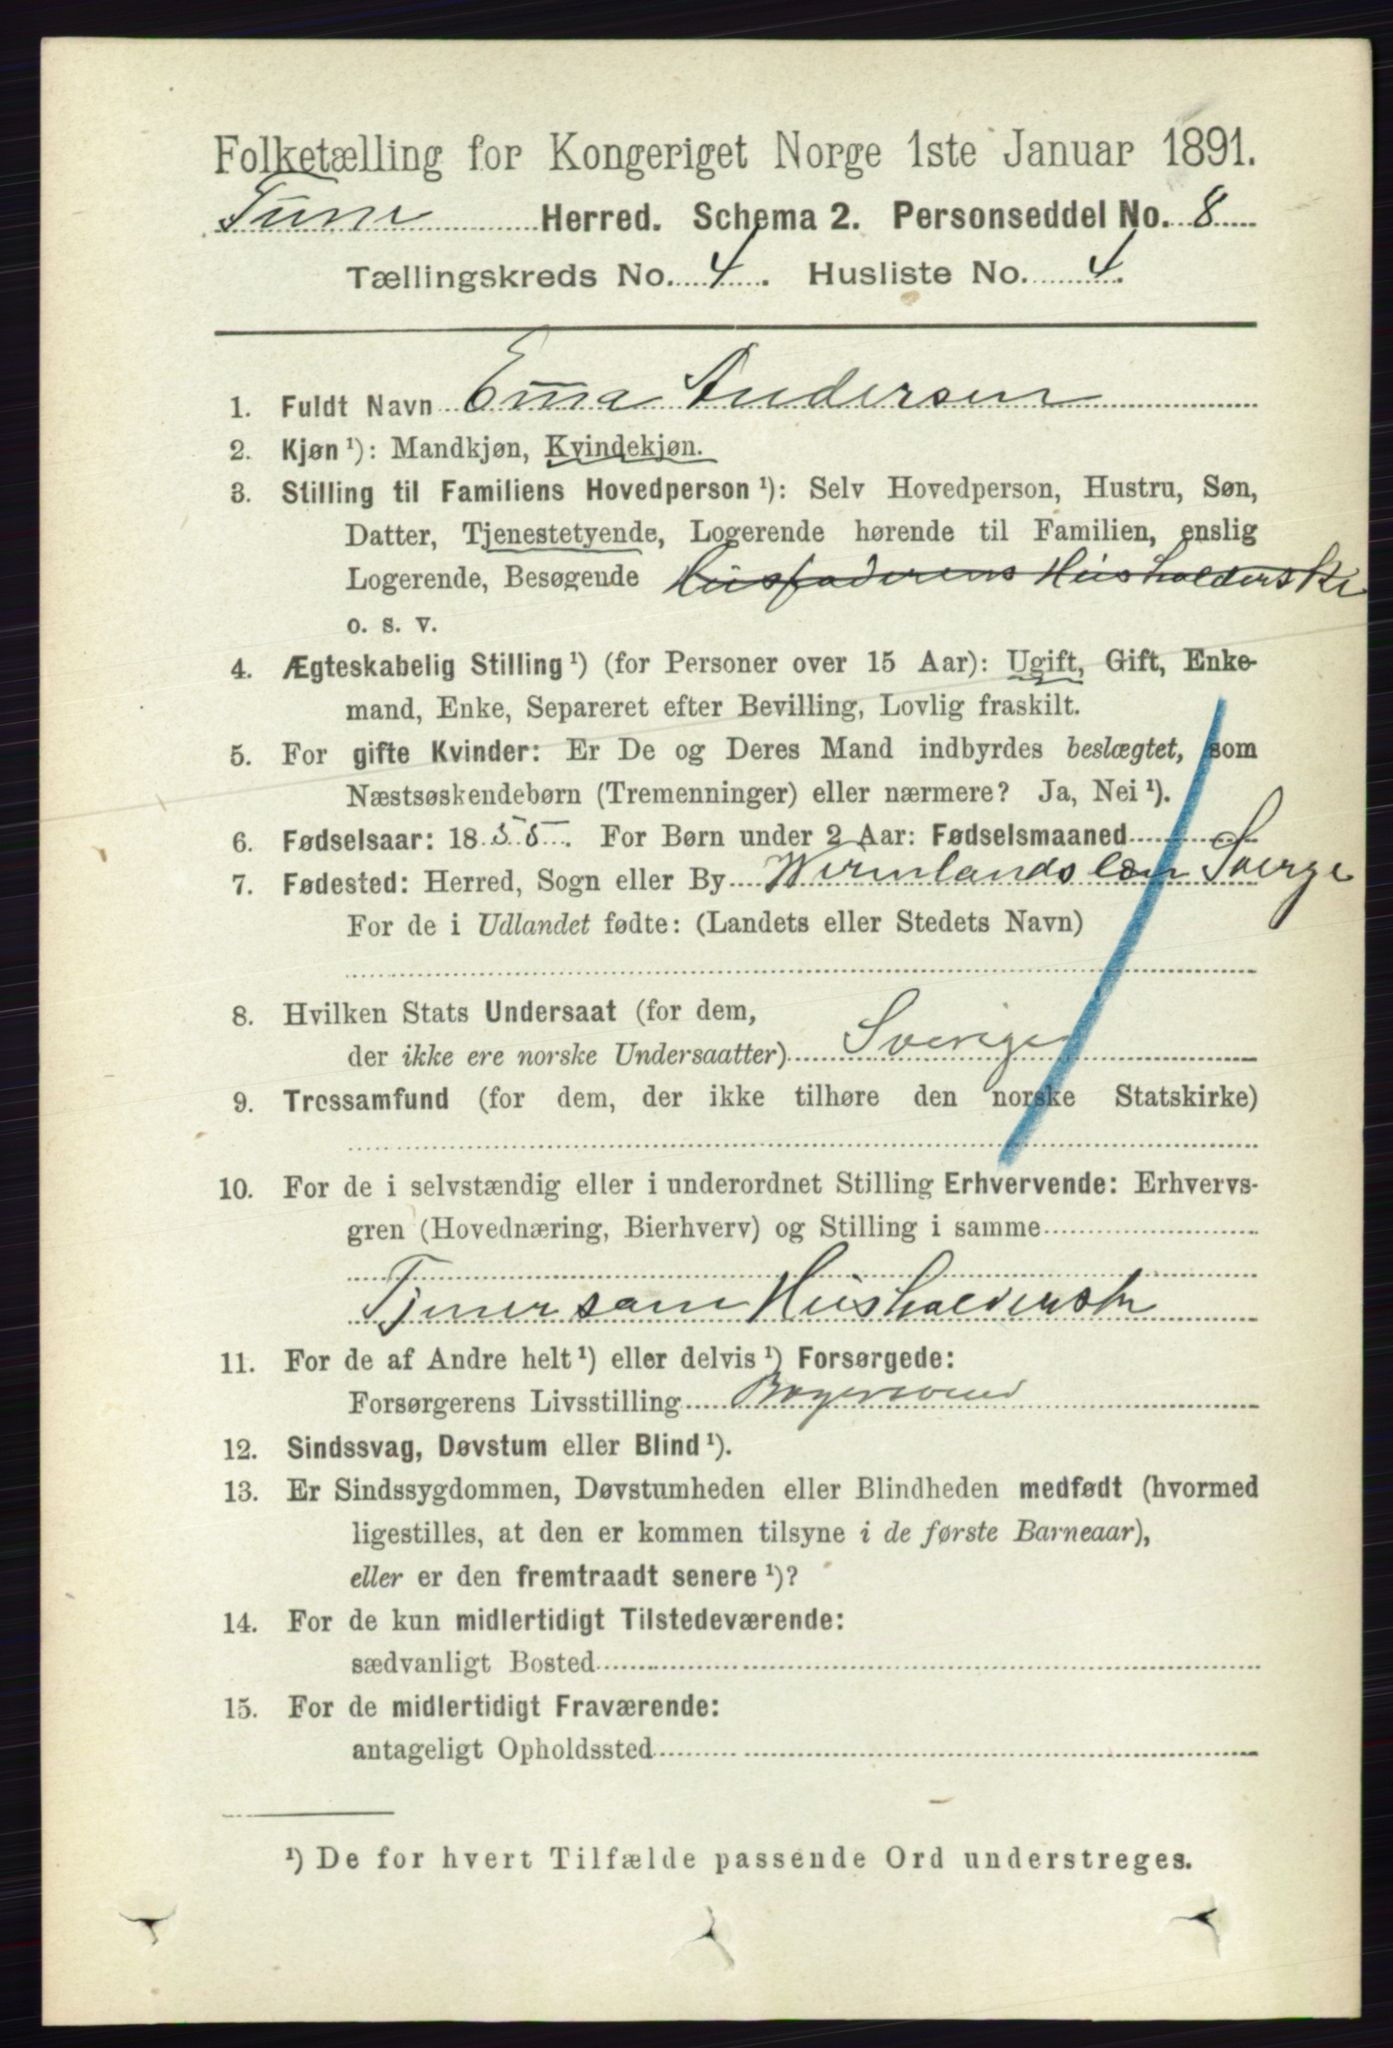 Folketælling for Kongeriget Norge 1ste Januar 1891.
Tune Herred. Schema 2. Personseddel No. 8
Tællingskreds No. 4. Husliste No. 4.
1. Fuldt Navn Em̅a Andersen
2. Kjøn ¹): Mandkjøn, Kvindekjøn.
3. Stilling til Familiens Hovedperson ¹): Selv Hovedperson, Hustru, Søn,
Datter, Tjenestetyende, Logerende hørende til Familien, enslig
Logerende, Besøgende Husfaderens Husholderske
o. s. v.
4. Ægteskabelig Stilling ¹) (for Personer over 15 Aar): Ugift, Gift, Enke-
mand, Enke, Separeret efter Bevilling, Lovlig fraskilt.
5. For gifte Kvinder: Er De og Deres Mand indbyrdes beslægtet, som
Næstsøskendebørn (Tremenninger) eller nærmere? Ja, Nei ¹).
6. Fødselsaar: 1855. For Børn under 2 Aar: Fødselsmaaned
7. Fødested: Herred, Sogn eller By Wermlands læn Sverge
For de i Udlandet fødte: (Landets eller Stedets Navn)
8. Hvilken Stats Undersaat (for dem,
der ikke ere norske Undersaatter) Sveriges
9. Trossamfund (for dem, der ikke tilhøre den norske Statskirke)
10. For de i selvstændig eller i underordnet Stilling Erhvervende: Erhvervs-
gren (Hovednæring, Bierhverv) og Stilling i samme
Tjener som Husholderske
11. For de af Andre helt ¹) eller delvis ¹) Forsørgede:
Forsørgerens Livsstilling Bagersvend
12. Sindssvag, Døvstum eller Blind ¹).
13. Er Sindssygdommen, Døvstumheden eller Blindheden medfødt (hvormed
ligestilles, at den er kommen tilsyne i de første Barneaar),
eller er den fremtraadt senere ¹)?
14. For de kun midlertidigt Tilstedeværende:
sædvanligt Bosted
15. For de midlertidigt Fraværende:
antageligt Opholdssted
¹) De for hvert Tilfælde passende Ord understreges.